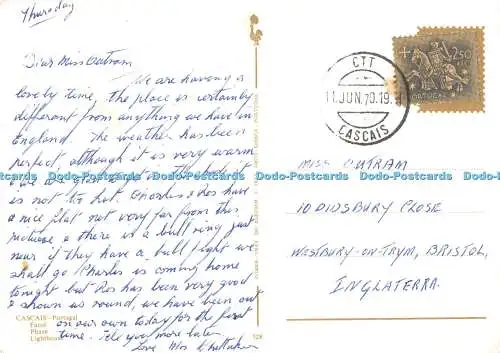 Thursday
Dear Miss Outram
We are having a
lovely time, the place is certainly
different from anything we have in
England. The weather has been
perfect, although it is very warm
we are glad
is not to hot. Charles & Ros have
a nice flat not very far from this
picture, & there is a bull ring just
near if they have a bull fight we
shall go Charles is coming home
tonight but Ros has been very good
& shown us round, we have been out
on our own today for the first
time. Tell you more later
Love Mrs
CASCAIS - Portugal
Farol
Phare
Lighthouse
CTT
11.JUN.70.19
CASCAIS
2$50
PORTUGAL
MISS OUTRAM
10 DIDSBURY CLOSE
WESTBURY-ON-TRYM, BRISTOL,
INGLATERRA.
Dodo-Postcards Dodo-Postcards Dodo-Postcards Dodo-Postcards Dodo-Postcards